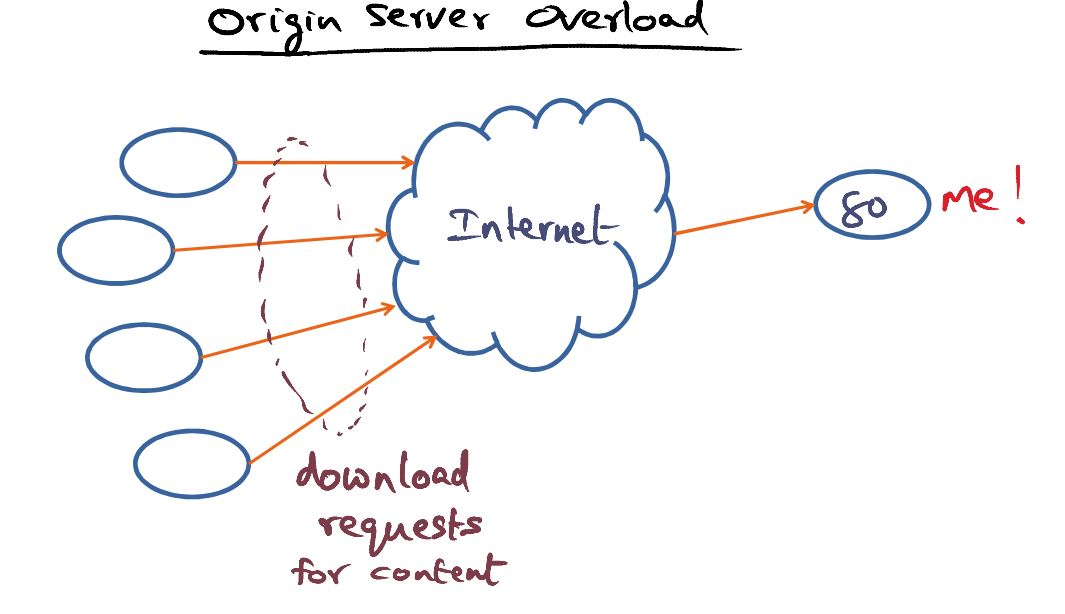 Origin Server Overload
Internet
80
me!
download
requests
for content